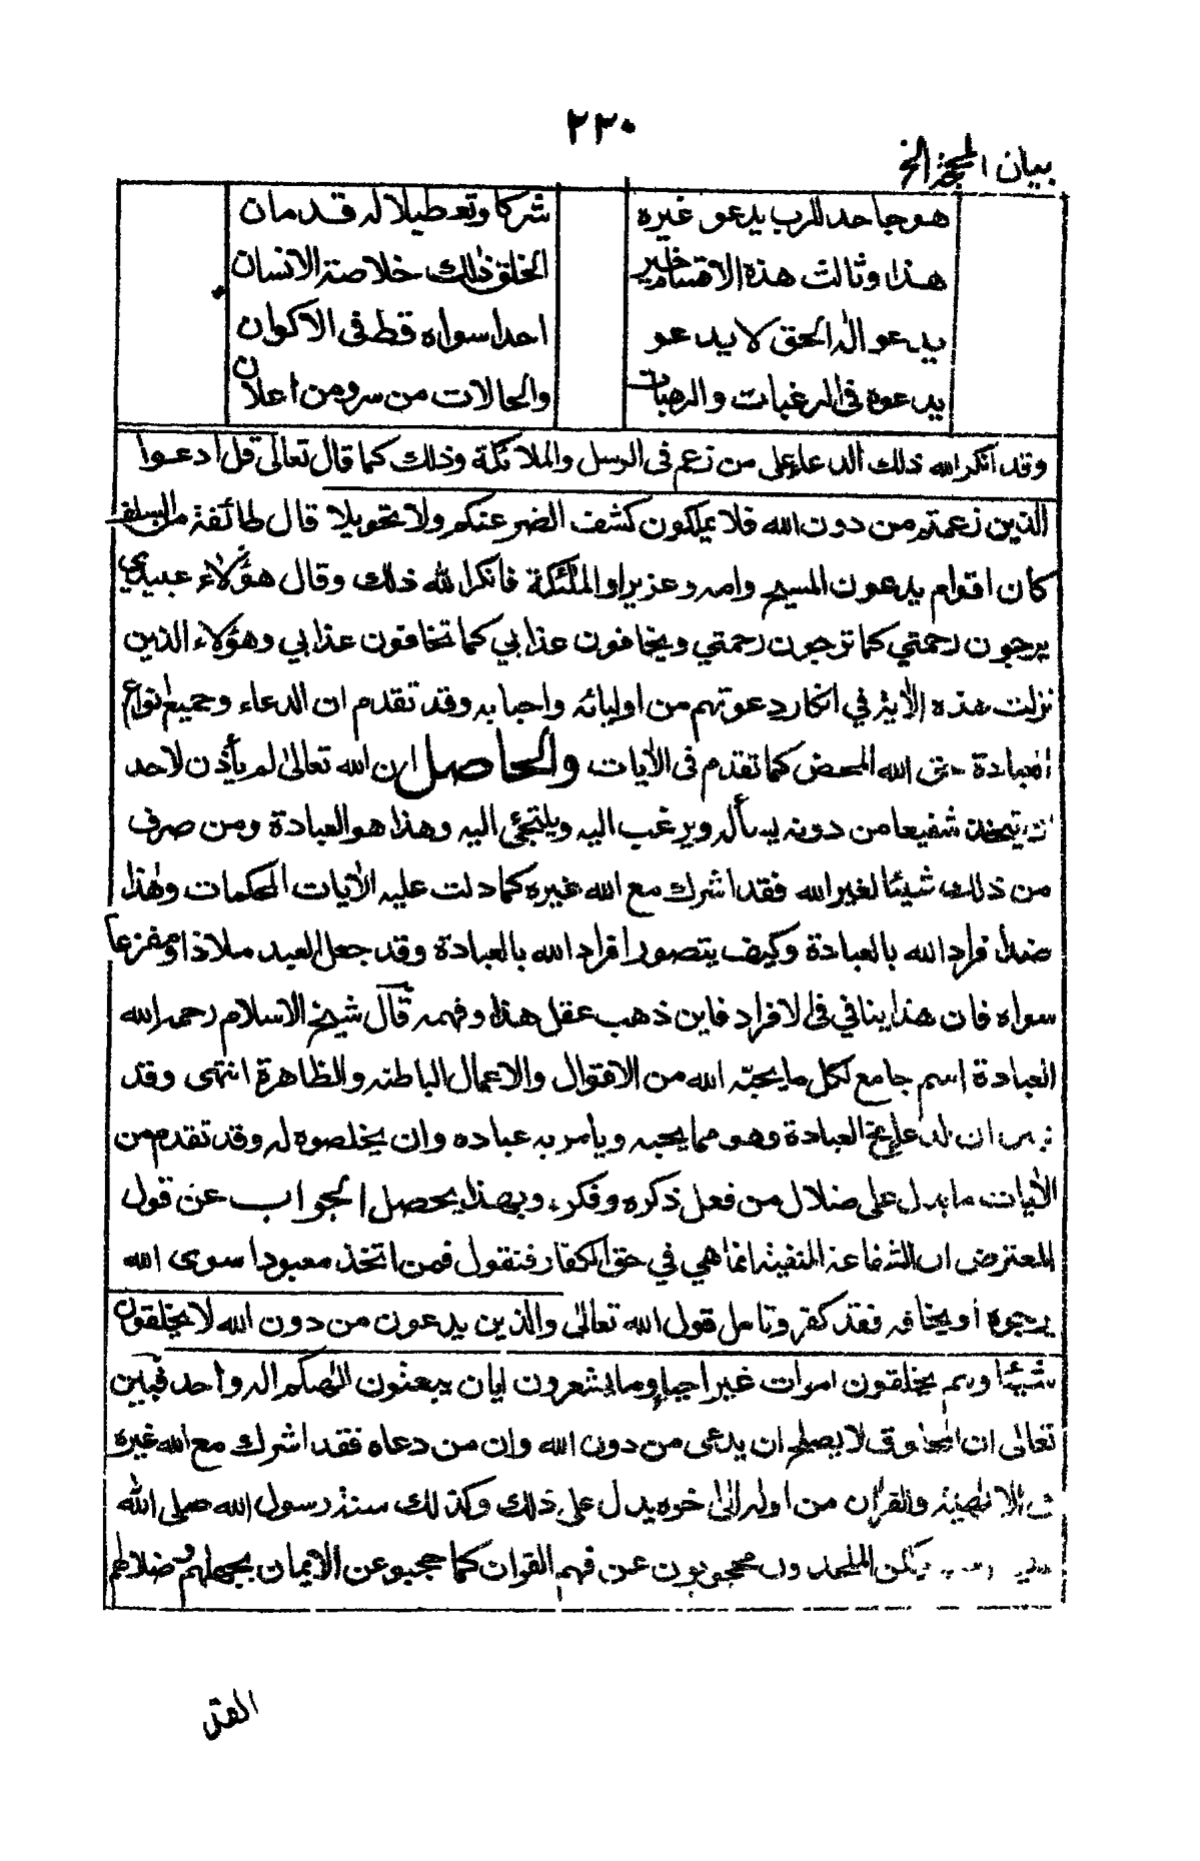 ٢٣٠
بيان المحجة الخ
هو جاحد للرب يدعو غيره شركا وتعطيلا له قدمان
هذا وثالث هذه الاقسام خير الخلق ذلك خلاصة الانسان
يدعو اله الحق لا يدعو احدا سواه قط فى الاكوان
يدعوه فى الرغبات والرهبات والحالات من سر ومن اعلان
وقد انكر الله ذلك الدعاء على من زعم فى الرسل والملائكة وذلك كما قال تعالى قل ادعوا
الذين زعمتم من دون الله فلا يملكون كشف الضر عنكم ولا تحويلا قال طائفة من السلف
كان اقوام يدعون المسيح وامه وعزيرا والملئكة فانكر الله ذلك وقال هؤلاء عبيدي
يرجون رحمتي كما ترجون رحمتي ويخافون عذابي كما تخافون عذابي وهؤلاء الذين
نزلت هذه الاية في انكار دعوتهم من اوليائه واحبابه وقد تقدم ان الدعاء وجميع انواع
العبادة حق الله المحض كما تقدم فى الايات والحاصل ان الله تعالى لم يأذن لاحد
ان يتخذ شفيعا من دونه يسأله ويرغب اليه ويلتجئ اليه وهذا هو العبادة ومن صرف
من ذلك شيئا لغير الله فقد اشرك مع الله غيره كما دلت عليه الايات المحكمات وهذا
ضد افراد الله بالعبادة وكيف يتصور افراد الله بالعبادة وقد جعل العبد ملاذا ومفزعا
سواه فان هذا ينافي فى الافراد فاين ذهب عقل هذا وفهمه قال شيخ الاسلام رحمه الله
العبادة اسم جامع لكل ما يحبه الله من الاقوال والاعمال الباطنه والظاهرة انتهى وقد
ان الدعاء مخ العبادة وهو مما يحبه ويامر به عباده وان يخلصوه له وقد تقدم من
الايات ما يدل على ضلال من فعل ذكره وفكره وبهذا يحصل الجواب عن قول
المعترض ان الشفاعة المنفية انما هي في حق الكفار فنقول فمن اتخذ معبودا سوى الله
يرجوه او يخافه فقد كفر وتامل قول الله تعالى والذين يدعون من دون الله لا يخلقون
شيئا وهم يخلقون اموات غير احياء وما يشعرون ايان يبعثون الهكم اله واحد فبين
تعالى ان المخلوق لا يصلح ان يدعى من دون الله وان من دعاه فقد اشرك مع الله غيره
والقرآن من اوله الى اخره يدل على ذلك وكذلك سنة رسول الله صلى الله
الملحدون محجوبون عن فهم القران كما حجبو عن الايمان بجهلهم وضلالهم